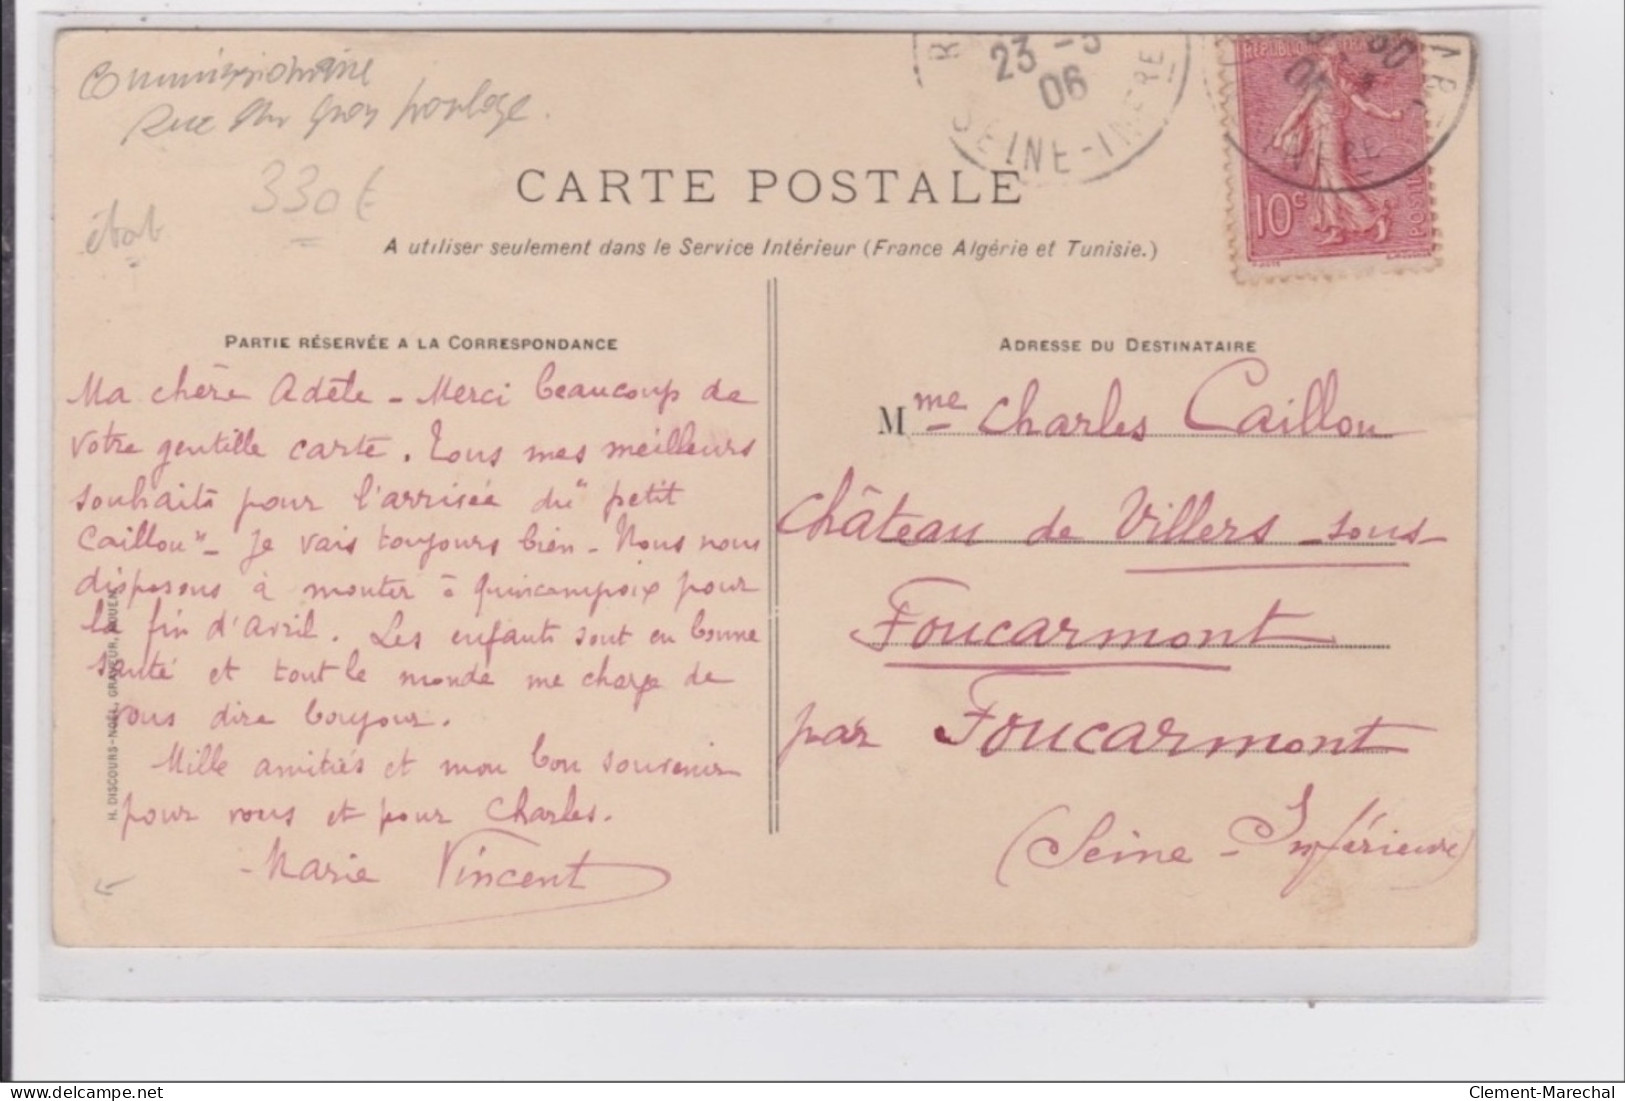 Commissionnaire
Rue du Gros horloge.
330€
état
R
23 -3
06
SEINE-INFRE
RÉPUBLIQUE FRANÇAISE
10c
POSTES
INFRE
CARTE POSTALE
A utiliser seulement dans le Service Intérieur (France Algérie et Tunisie.)
PARTIE RÉSERVÉE A LA CORRESPONDANCE
Ma chère Adèle - Merci beaucoup de
votre gentille carte. Tous mes meilleurs
souhaits pour l'arrivée du "petit
Caillou" - Je vais toujours bien - Nous nous
disposons à monter à Quincampoix pour
la fin d'avril. Les enfants sont en bonne
santé et tout le monde me charge de
vous dire bonjour.
Mille amitiés et mon bon souvenir
pour vous et pour Charles.
Marie Vincent
H. DISCOURS-NOËL, GRAVEUR, ROUEN
ADRESSE DU DESTINATAIRE
Mme Charles Caillou
Château de Villers-sous-
Foucarmont
par Foucarmont
(Seine-Inférieure)
Clement-Marechal